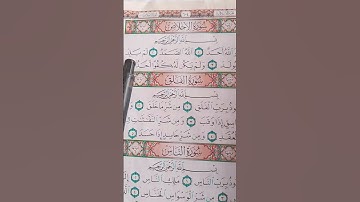 سُورَةُ الْإِخْلَاصِ
بِسْمِ اللَّهِ الرَّحْمَٰنِ الرَّحِيمِ
اللَّهُ أَحَدٌ ١ اللَّهُ الصَّمَدُ ٢ لَمْ يَلِدْ
وَلَمْ يَكُن لَّهُ كُفُوًا أَحَدٌ
سُورَةُ الْفَلَقِ
بِسْمِ اللَّهِ الرَّحْمَٰنِ الرَّحِيمِ
بِرَبِّ الْفَلَقِ ١ مِن شَرِّ مَا خَلَقَ
إِذَا وَقَبَ ٣ وَمِن شَرِّ النَّفَّٰثَٰتِ
وَمِن شَرِّ حَاسِدٍ إِذَا حَسَدَ
سُورَةُ النَّاسِ
بِسْمِ اللَّهِ الرَّحْمَٰنِ الرَّحِيمِ
بِرَبِّ النَّاسِ ١ مَلِكِ النَّاسِ
مِن شَرِّ الْوَسْوَاسِ الْخَنَّاسِ